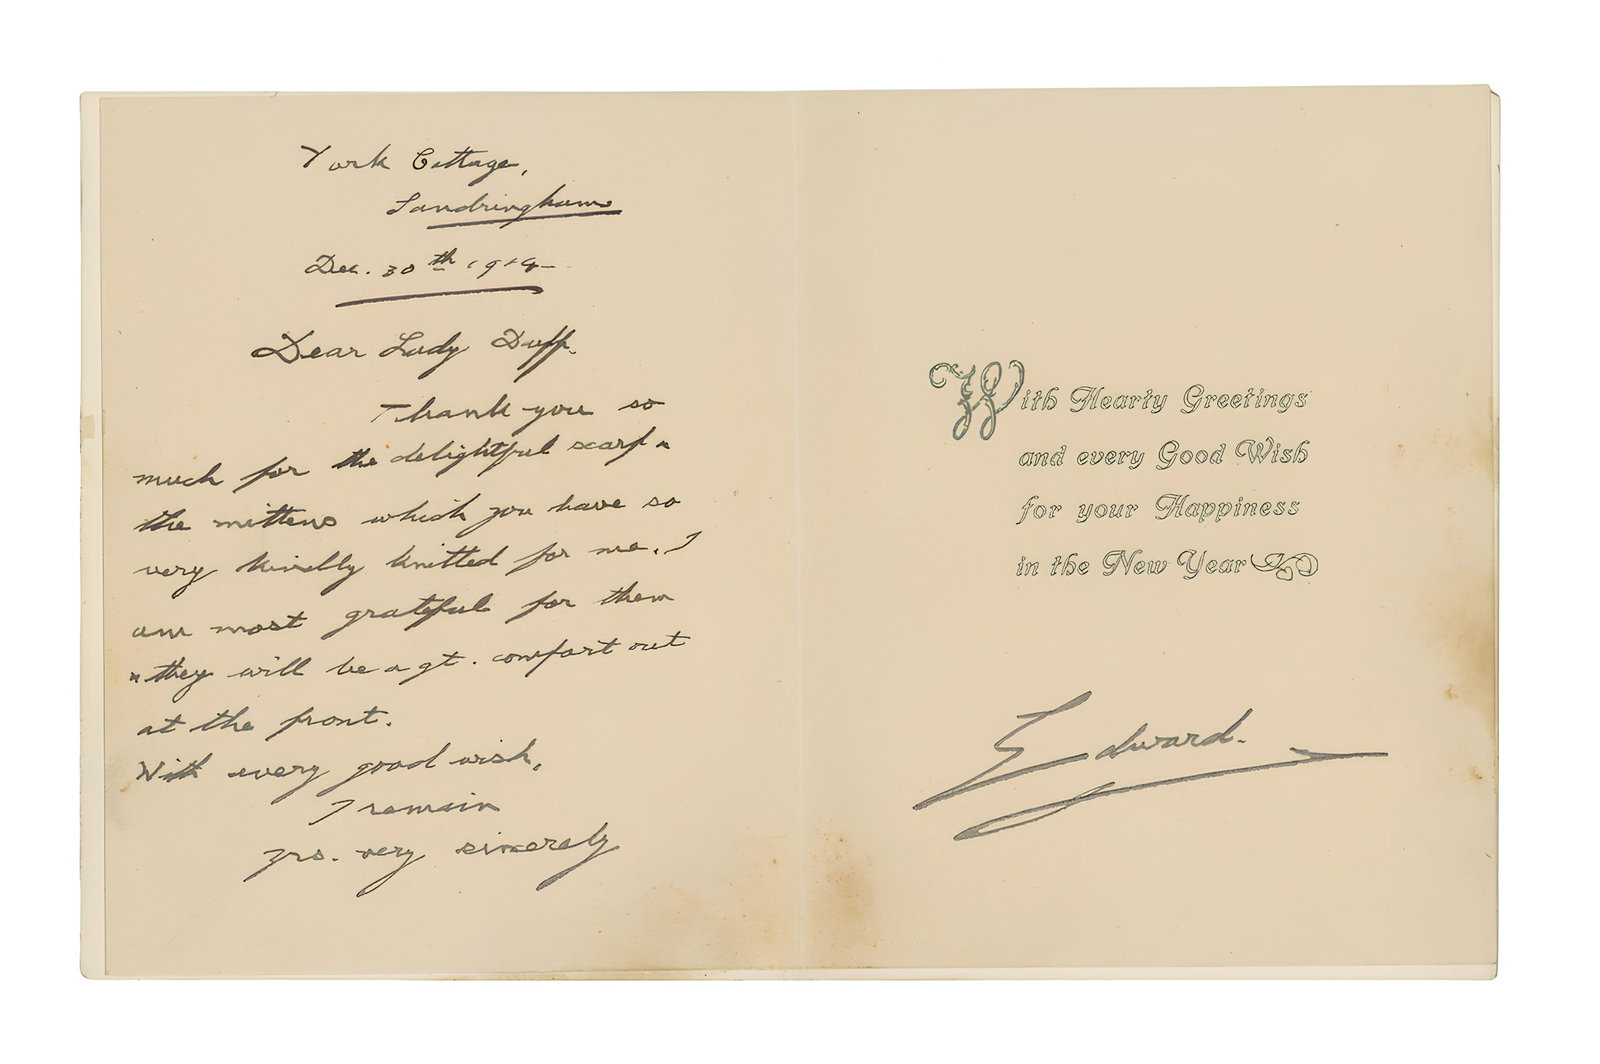 York Cottage,
Sandringham
Dec. 30th 1914
Dear Lady Duff.
Thank you so
much for the delightful scarf &
the mittens which you have so
very kindly knitted for me. I
am most grateful for them
& they will be a gt. comfort out
at the front.
With every good wish,
I remain
yrs. very sincerely
With Hearty Greetings
and every Good Wish
for your Happiness
in the New Year
Edward.